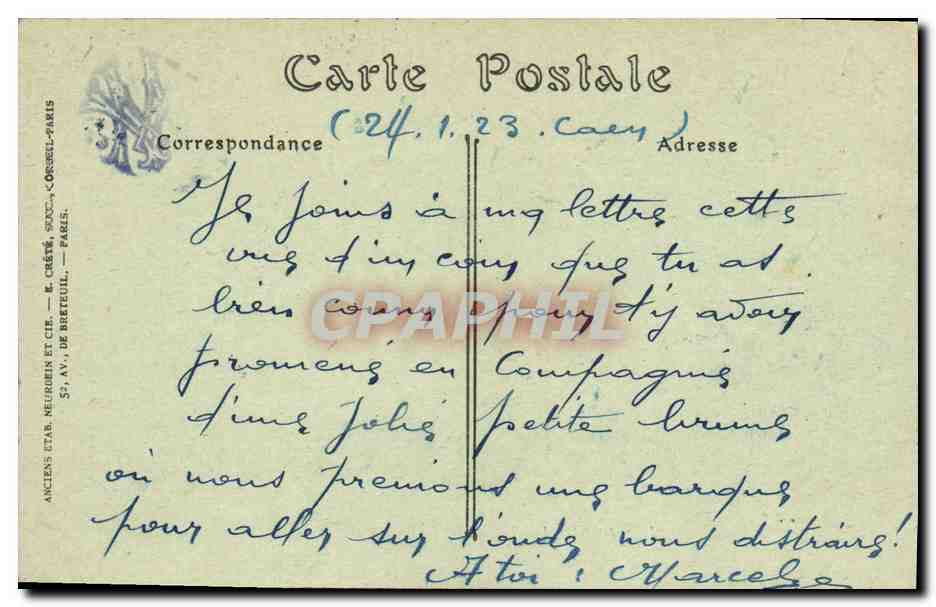 Carte Postale
(24.1.23. Caen)
Correspondance
Adresse
Je joins à ma lettre cette
vue d'un coin que tu as
bien connu pour t'y avoir
promené en Compagnie
d'une jolie petite brune
où nous prenions une barque
pour aller sur l'onde nous distraire!
A toi : Marcel
CPAPHIL
ANCIENS ETAB. NEURDEIN ET CIE. — E. CRÉTÉ, SUCC., CORBEIL-PARIS
52, AV., DE BRETEUIL, — PARIS.